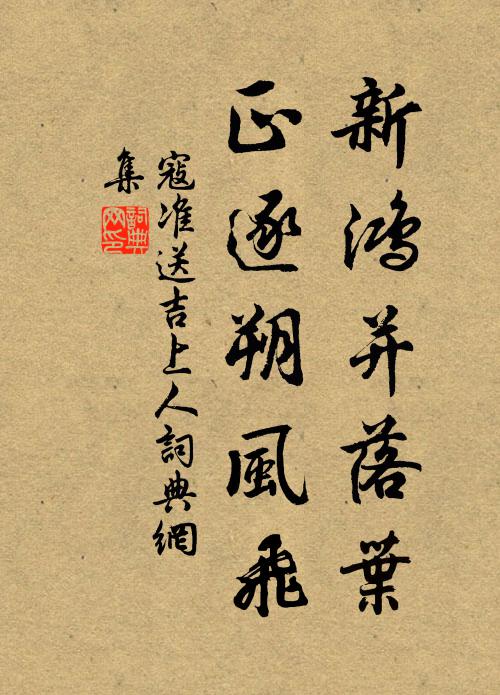 新鴻并落葉
正逐朔風飛
寇准送吉上人詞典網
集
詞典
网印